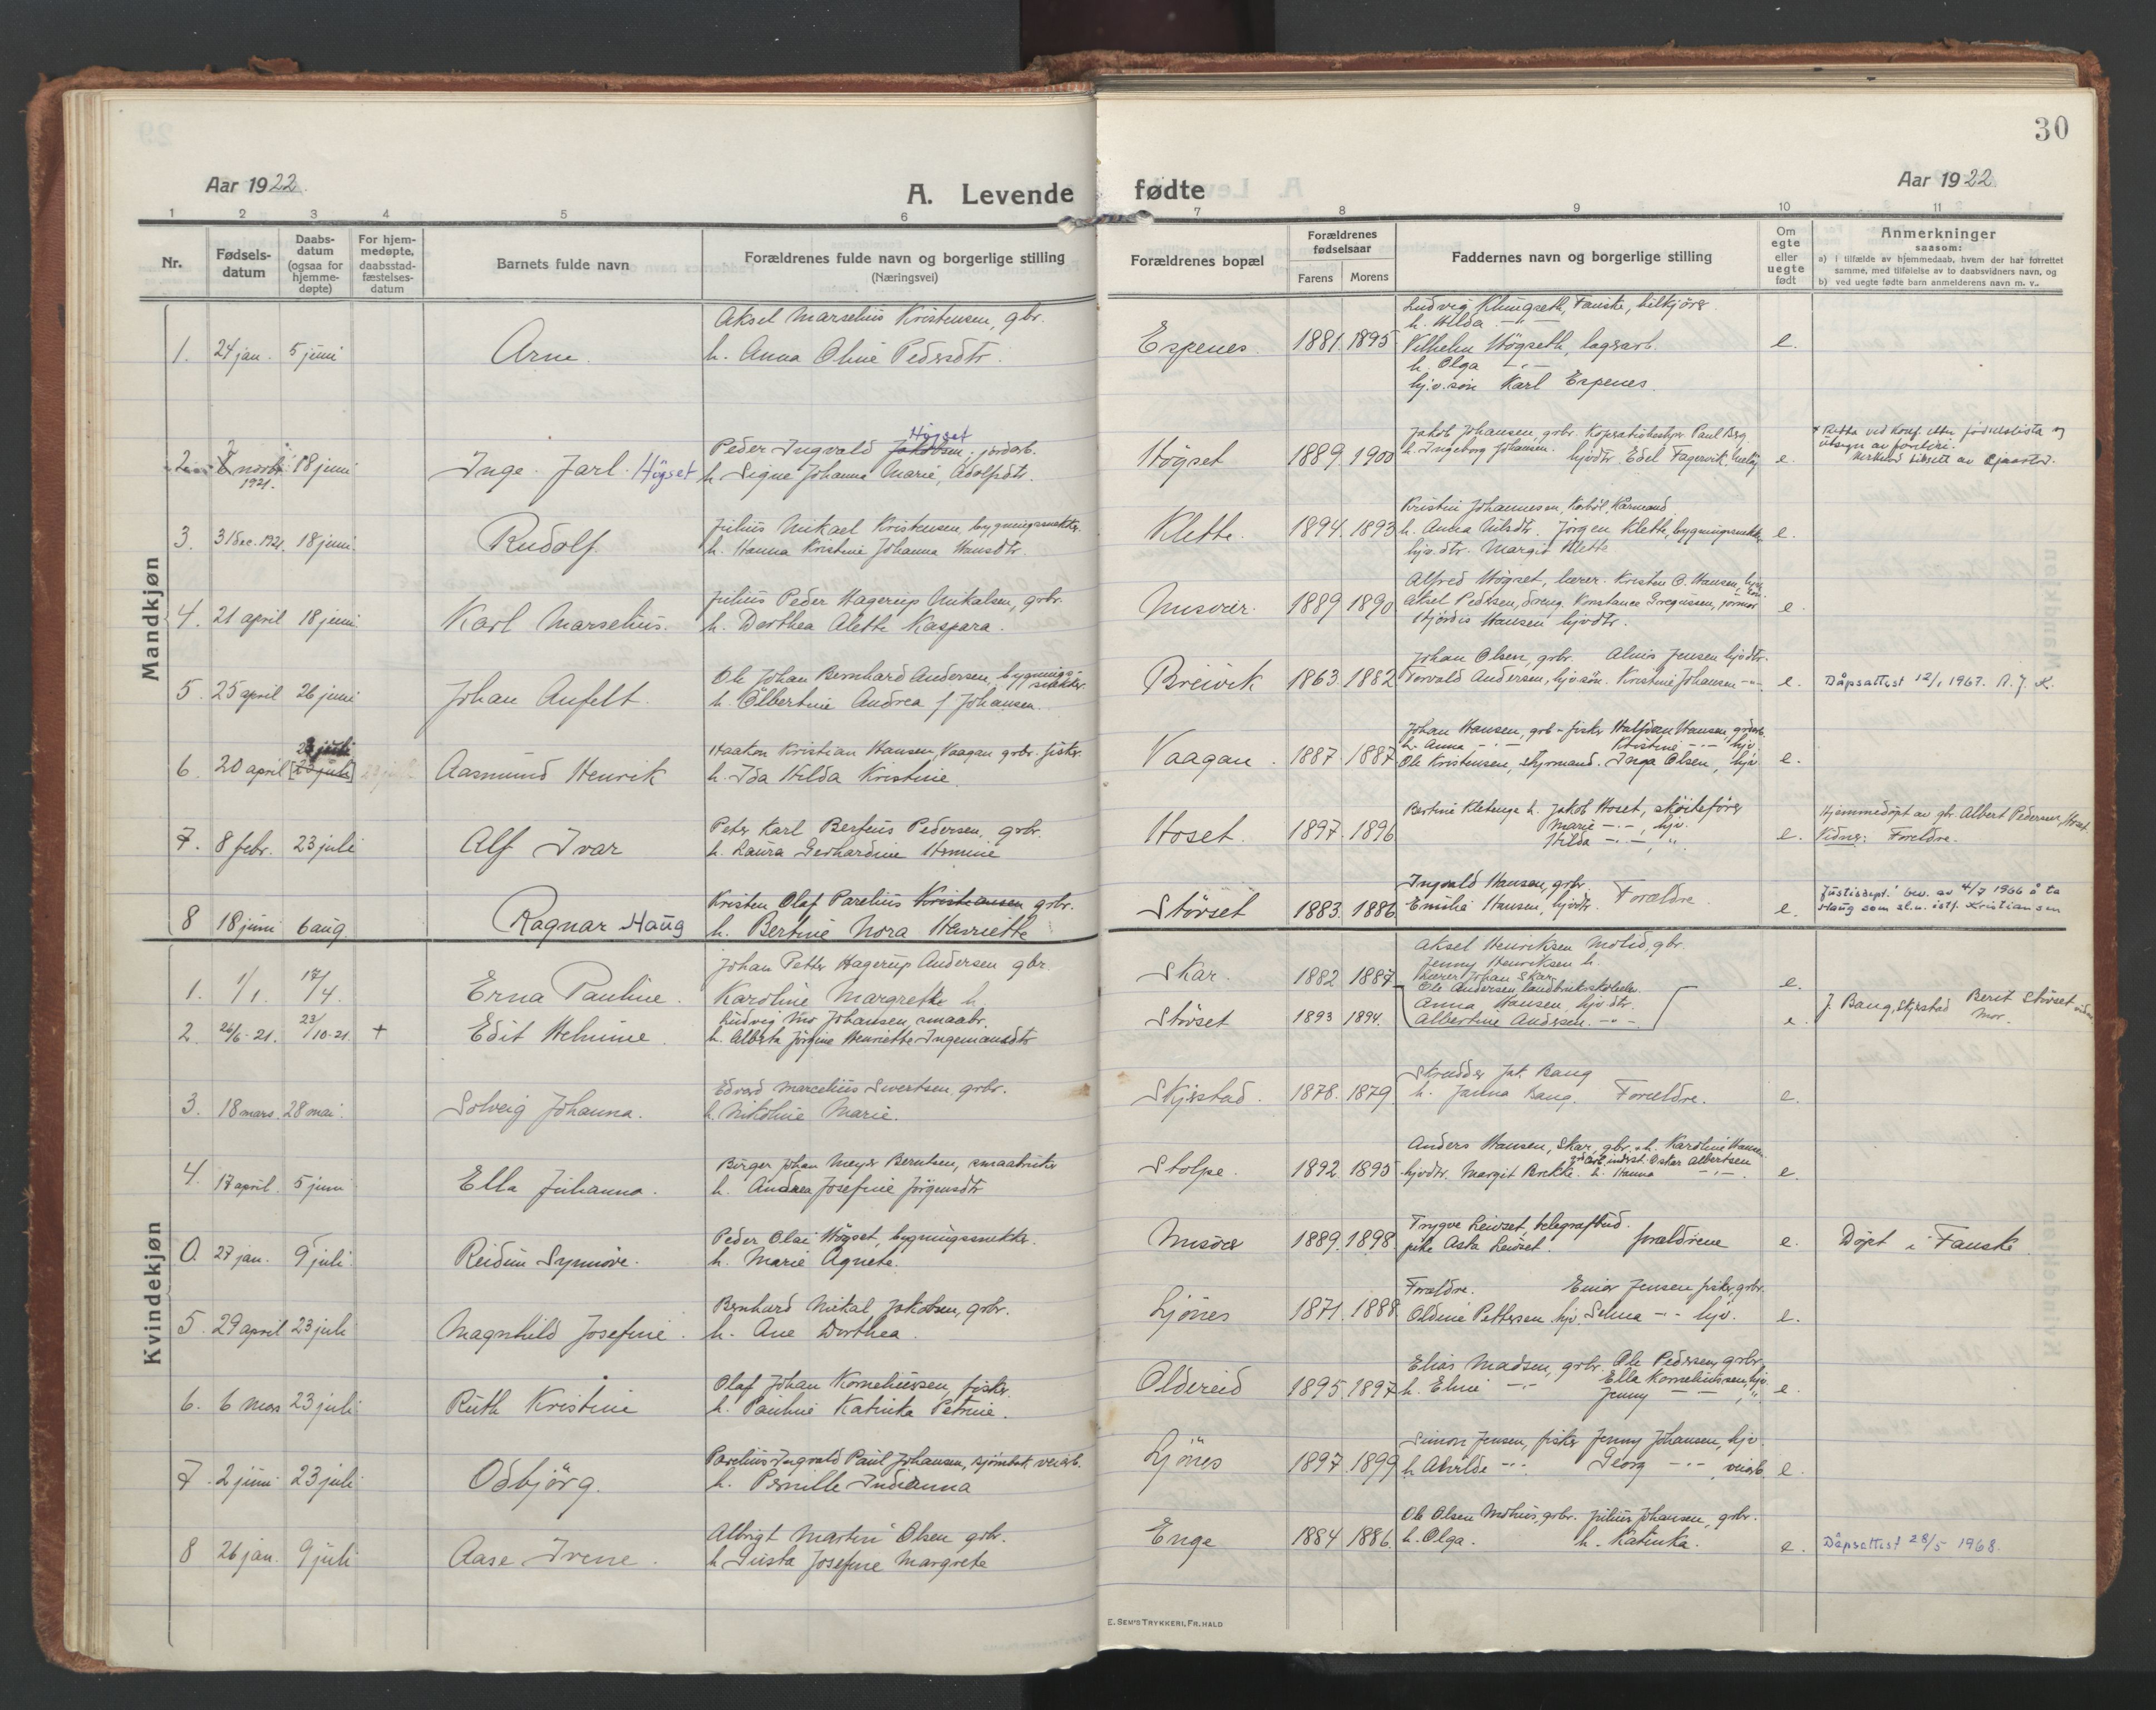 30
Aar 1922.
A. Levende fødte
Aar 1922
1 2 3 4 5 6 7 8 9 10 11
Nr.
Fødsels-
datum
Daabs-
datum
(ogsaa for
hjemme-
døpte)
For hjem-
medøpte,
daabsstad-
fæstelses-
datum
Barnets fulde navn
Forældrenes fulde navn og borgerlige stilling
(Næringsvei)
Forældrenes bopæl
Forældrenes
fødselsaar
Farens Morens
Faddernes navn og borgerlige stilling
Om
egte
eller
uegte
født
Anmerkninger
saasom:
a) i tilfælde av hjemmedaab, hvem der har forrettet
samme, med tilføielse av to daabsvidners navn, og
b) ved uegte født barn anmelderens navn m. v.
Mandkjøn
1. 24 jan. 5 juni
Arne.
Aksel Marselius Kristensen, gbr.
h. Anna Oline Pedersdtr.
Espenes. 1881. 1895
Ludvig Klungseth, Fauske, bilkjörer
h. Hilda -"-
Vilhelm Högseth, lagerarb.
h. Olga -"-
hjv. sön Karl Espenes.
e.
1921. 18 juni
Inge Jarl Högset
Högset
Peder Ingvald Jakobsen, jordarb.
h. Signe Johanna Marie, Adolfsdtr.
Högset 1889. 1900
Jakob Johansen, grbr. Paul Berg
h. Ingeborg Johansen. hjvdtr. Edel Fagervik, Meløy
e.
Retta ved konf. etter fødselslista og
utsegn av foreldri.
3. 31 dec. 1921. 18 juni
Rudolf
Julius Mikael Kristensen, bygningssnekker.
h. Hanna Kristine Johanna Hansdtr.
Klette. 1894. 1893
Kristine Johannesen,
h. Anna Nilsdtr. Jörgen Klette, bygningssnekker
hjv. dtr. Margit Klette
e.
4. 21 april 18 juni
Karl Marselius.
Julius Peder Hagerup Mikalsen, grbr.
h. Dorthea Alette Kaspara.
Misvær. 1889 1890
Alfred Högset, lærer. Kristen O. Hansen,
Aksel Pedersen, dreng. Konstance Gregussen,
Hjördis Hansen hjvdtr.
e
5. 25 april 26 juni
Johan Anfelt.
Ole Johan Bernhard Andersen, bygnings-
snekker.
h. Olbertine Andrea f Johansen.
Breivik 1863. 1882
Johan Olsen, grbr. Jensen hjvdtr.
Torvald Andersen, hjv.sön. Kristine Johansen -"-
e.
Dåpsattest 12/1 1967. A. J. K.
6. 20 april [23 juli]
23 juli
Aasmund Henrik
Haakon Kristian Hansen, Vaagan grbr. fisker.
h. Ida Hilda Kristine.
Vaagan. 1887. 1887
Johan Hansen, grb - fisker Halfdan Hansen,
h. Anna -"- Kristine -"- hjv.
Ole Kristensen, styrmand. Inga Olsen, hjv
e.
7. 8 febr. 23 juli
Alf Ivar
Peter Karl Berteus Pedersen, grbr.
h. Laura Gerhardine Hermine
Hoset. 1897. 1896
Bertine Kletunge h. Jakob Hoset, sköitefører
Marie -"-, hjv.
Hilda -"- "
e.
Hjemmedöpt av gbr. Albert Pedersen, Hoset.
Vidner: Foreldre.
8 18 juni 6 aug.
Ragnar Haug
Kristen Olaf Parelius Kristiansen grbr.
h. Bertine Nora Henriette
Störset 1883. 1886
Ingvald Hansen, grbr.
Emilie Hansen, hjvdtr. Forældre.
e.
Justisdept. bev. av 4/7 1966 å ta
Haug som sl.n. istf. Kristiansen
Kvindekjøn
1. 1/1. 17/4.
Erna Pauline.
Johan Petter Hagerup Andersen gbr.
Karoline Margrethe h.
Skar. 1882 1887
Aksel Henriksen Molid, gbr.
Jenny Henriksen h.
Lærer Johan Skar
e.
2. 26/6-21. 23/10-21. +
Edit Helmine.
Ludvig Mo Johansen, smaabr.
h. Alberta Jörgine Henriette Ingemannsdtr
Störset 1893 1894.
Ole Andersen landbruksskoleelev.
Anna Hansen hjv dtr.
Albertine Andersen. -"-
e.
J. Bang, Skjerstad Berit Störset
Mor.
3. 18 mars. 28 mai.
Solveig Johanna.
Edvard Marcelius Sivertsen, grbr.
h. Nikoline Marie.
Skjerstad. 1878. 1879.
Skrædder Jak. Bang
h. Janna Bang. Forældre.
e.
4. 17 april. 5 juni
Ella Johanna.
Birger Johan Meyer Berntsen, smaabruker
h. Andrea Josefine Jörgensdtr
Stolpe. 1892. 1895
Anders Hansen, Skar, gbr. h. Karoline Hansen.
hjvdtr. Margit Brekke. Oskar Albertsen
h. Hanna -"-
e.
0. 27 jan. 9 juli.
Reidun Synnöve.
Peder Olai Högset, bygningssnekker.
h. Marie Agnete.
Misvær 1889. 1898
Trygve Leivset, telegrafbud.
pike Asta Leivset. forældrene
e.
Döpt i Fauske
5. 29 april 23 juli
Magnhild Josefine.
Bernhard Mikal Jakobsen, grbr.
h. Ane Dorthea.
Ljönes 1871. 1888
Forældre. Einar Jensen fisker, grbr.
Oldine Pettersen hjv. Selma -"- hjv.
e.
6. 6 mars 23 juli
Ruth Kristine
Olaf Johan Korneliussen, fisker.
h. Pauline Katinka Petrine.
Oldereid 1895. 1897
Elias Madsen, grbr. Ole Pedersen, grbr.
h. Eline -"- Ella Korneliussen, hjv.
Jenny -"- "
e.
7. 2 juni 23 juli
Odbjörg.
Parelius Ingvald Paul Johansen, veiarb.
h. Pernille Indianna
Ljönes 1897. 1899
Simon Jensen, fisker Jenny Johansen, hjv.
h. Alvilde -"- Georg -"-, veiarb.
e.
8 26 jan. 9 juli
Aase Irene.
Albrigt Martin Olsen grbr.
h. Gusta Josefine Margrete
Enge 1884 1886.
Ole Olsen, grbr. Julius Johansen, grbr.
h. Olga. h. Katinka.
e.
Dåpsattest 28/5 1968.
E. SEM'S TRYKKERI, FR. HALD